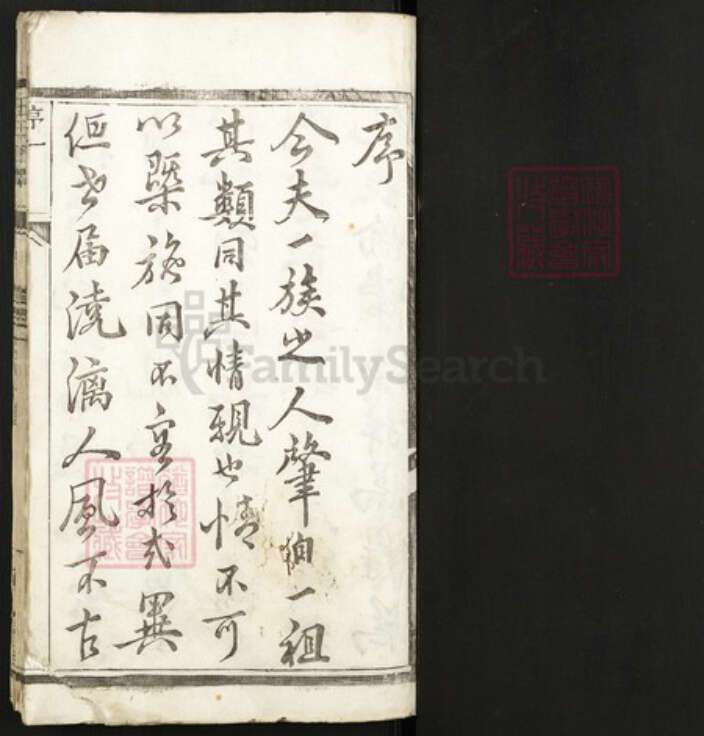 序
今夫一族之人肇自一祖
其類同其情親也情不可
以暌族固不容於或異
但世届澆漓人風不古
序一
FamilySearch